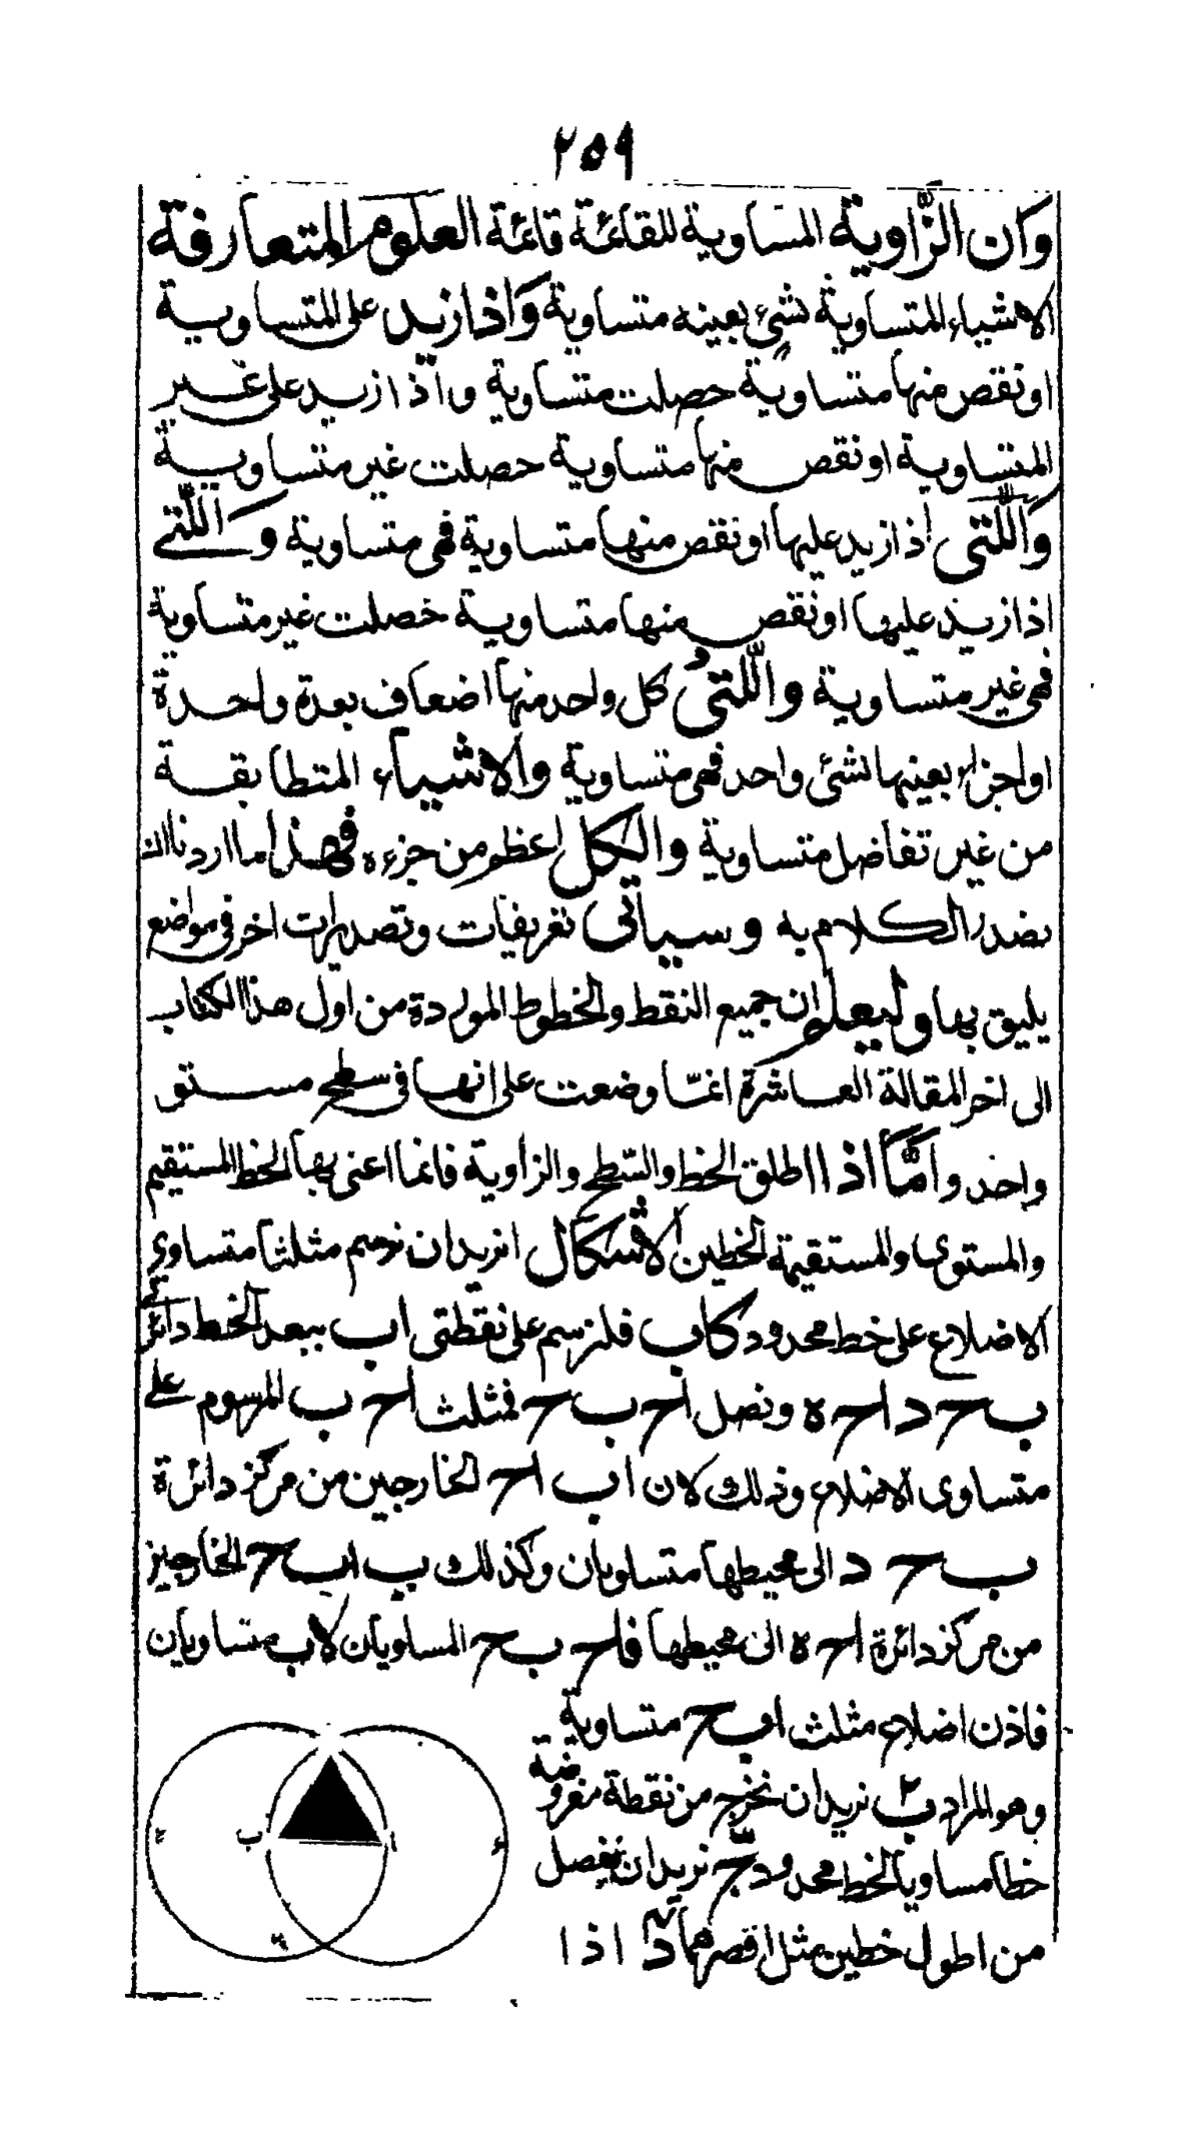 ٢٥٩
وان الزاوية المساوية للقائمة قائمة العلوم المتعارفة
الاشياء المتساوية لشئ بعينه متساوية واذا زيد على المتساوية
او نقص منها متساوية حصلت متساوية واذا زيد على غير
المتساوية او نقص منها متساوية حصلت غير متساوية
واللتى اذا زيد عليها او نقص منها متساوية فهى متساوية واللتى
اذا زيد عليها او نقص منها متساوية حصلت غير متساوية
فهى غير متساوية واللتى كل واحد منها اضعاف بعدة واحدة
او اجزاء بعينها لشئ واحد فهى متساوية والاشياء المتطابقة
من غير تفاضل متساوية والكل اعظم من جزءه فهذا ما اردنا ان
نصدر الكلام به وسياتى تعريفات وتصديرات اخر فى مواضع
يليق بها وليعلم ان جميع النقط والخطوط الموردة من اول هذا الكتاب
الى اخر المقالة العاشرة انما وضعت على انها فى سطح مستو
واحد واما اذا اطلق الخط والسطح والزاوية فانما اعنى بها الخط المستقيم
والمستوى والمستقيمة الخطين الاشكال ا نريد ان نرسم مثلثا متساوى
الاضلاع على خط محدود كاب فلنرسم على نقطتى ا ب ببعد الخط دائرتى
ب ح د ا ح ه ونصل ا ح ب ح فمثلث ا ح ب المرسوم على
متساوى الاضلاع وذلك لان ا ب ا ح الخارجين من مركز دائرة
ب ح د الى محيطها متساويان وكذلك ب ا ب ح الخارجين
من مركز دائرة ا ح ه الى محيطها فا ح ب ح المساويان لاب متساويان
فاذن اضلاع مثلث ا ب ح متساوية
وهو المراد ب نريد ان نخرج من نقطة مفروضة
خطا مساويا لخط محدود ج نريد ان نفصل
من اطول خطين مثل اقصرهما د اذا
ب ا